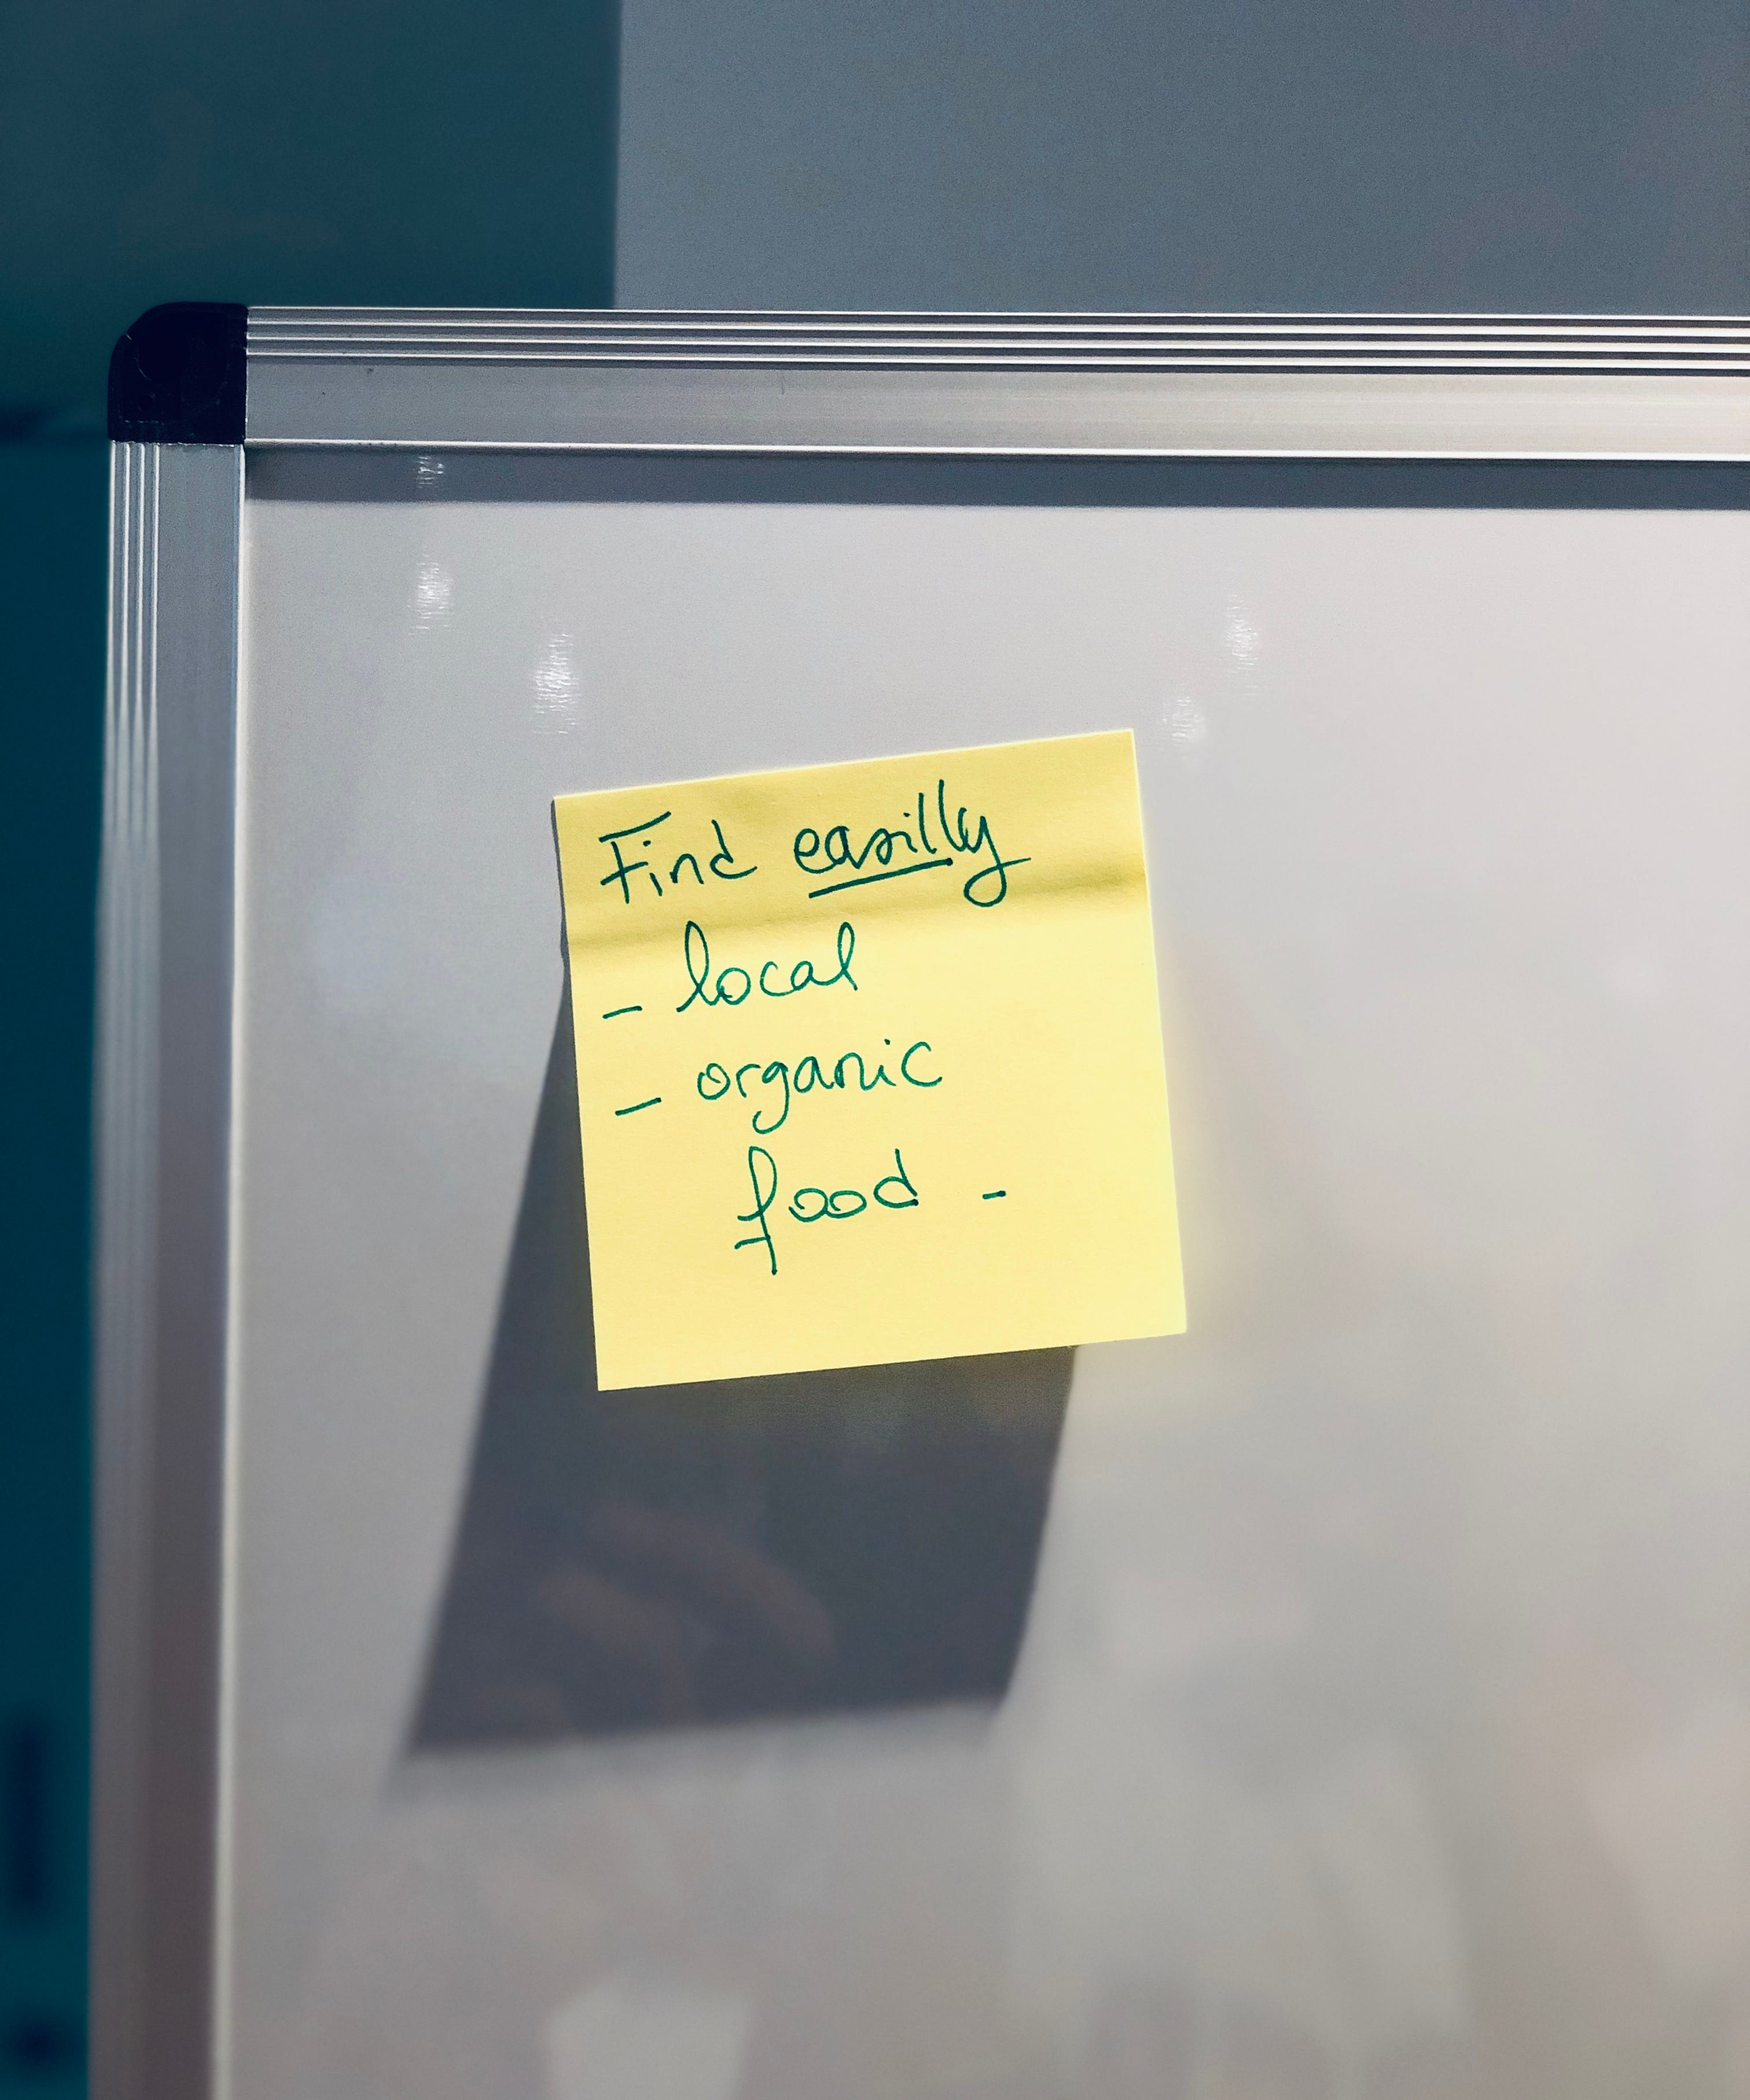 Find easilly
- local
- organic
food -